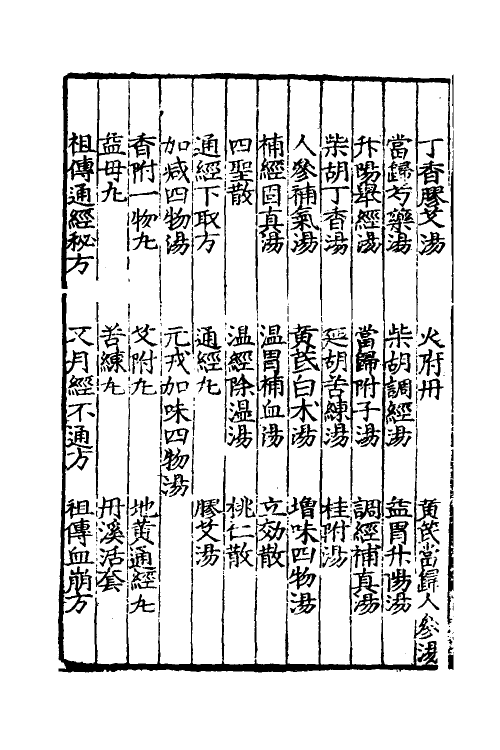 丁香膠艾湯　火府丹　黃芪當歸人參湯
當歸芍藥湯　柴胡調經湯　益胃升陽湯
升陽舉經湯　當歸附子湯　調經補真湯
柴胡丁香湯　延胡苦練湯　桂附湯
人參補氣湯　黃芪白术湯　增味四物湯
補經固真湯　温胃補血湯　立効散
四聖散　温經除湿湯　桃仁散
通經下取方　通經丸　膠艾湯
加减四物湯　元戎加味四物湯
香附一物丸　艾附丸　地黃通經丸
益母丸　苦練丸　丹溪活套
祖傳通經秘方　又月經不通方　祖傳血崩方